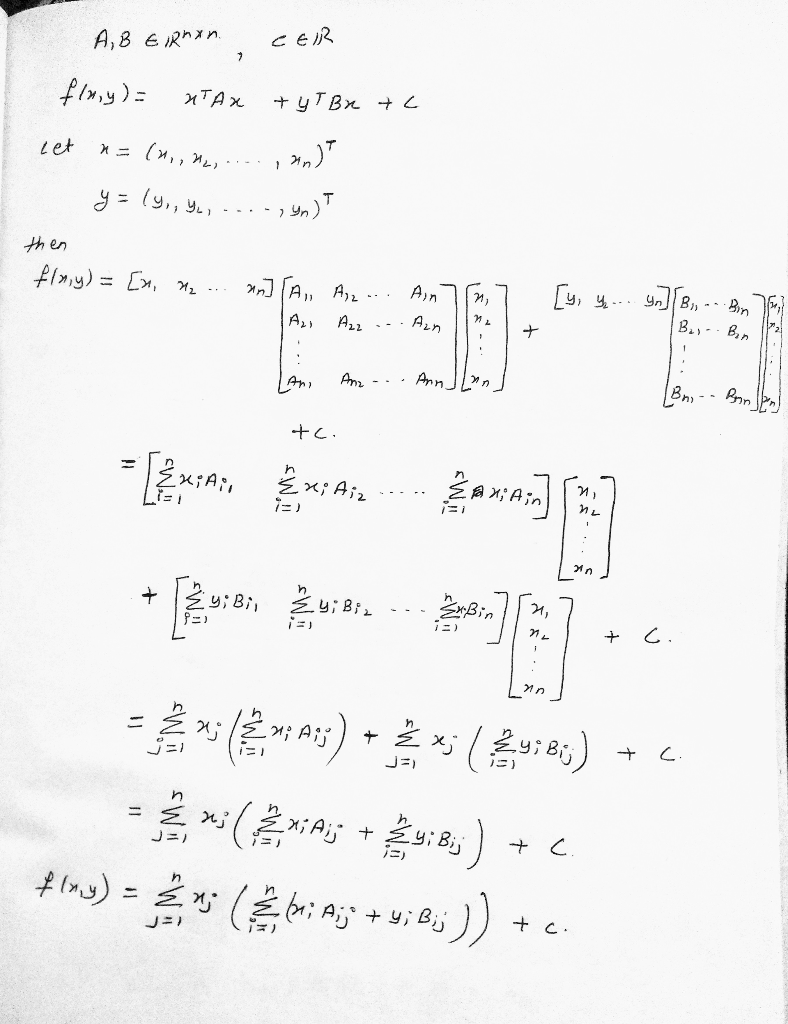 A, B ∈ ℝⁿˣⁿ, c ∈ ℝ
f(x,y) = xᵀAx + yᵀBx + c
Let x = (x₁, x₂, ....., xₙ)ᵀ
y = (y₁, y₂, ....., yₙ)ᵀ
then
f(x,y) = [x₁ x₂ ... xₙ] [A₁₁ A₁₂ ... A₁ₙ; A₂₁ A₂₂ ... A₂ₙ; ⋮; Aₙ₁ Aₙ₂ ... Aₙₙ] [x₁; x₂; ⋮; xₙ] + [y₁ y₂ ... yₙ] [B₁₁ ... B₁ₙ; B₂₁ ... B₂ₙ; ⋮; Bₙ₁ ... Bₙₙ] [x₁; x₂; ⋮; xₙ]
+ c.
= [∑ᵢ₌₁ⁿ xᵢAᵢ₁ ∑ᵢ₌₁ⁿ xᵢAᵢ₂ ..... ∑ᵢ₌₁ⁿ xᵢAᵢₙ] [x₁; x₂; ⋮; xₙ]
+ [∑ᵢ₌₁ⁿ yᵢBᵢ₁ ∑ᵢ₌₁ⁿ yᵢBᵢ₂ ... ∑ᵢ₌₁ⁿ xᵢBᵢₙ] [x₁; x₂; ⋮; xₙ] + c.
= ∑ⱼ₌₁ⁿ xⱼ (∑ᵢ₌₁ⁿ xᵢAᵢⱼ) + ∑ⱼ₌₁ⁿ xⱼ (∑ᵢ₌₁ⁿ yᵢBᵢⱼ) + c.
= ∑ⱼ₌₁ⁿ xⱼ (∑ᵢ₌₁ⁿ xᵢAᵢⱼ + ∑ᵢ₌₁ⁿ yᵢBᵢⱼ) + c.
f(x,y) = ∑ⱼ₌₁ⁿ xⱼ (∑ᵢ₌₁ⁿ (xᵢAᵢⱼ + yᵢBᵢⱼ)) + c.